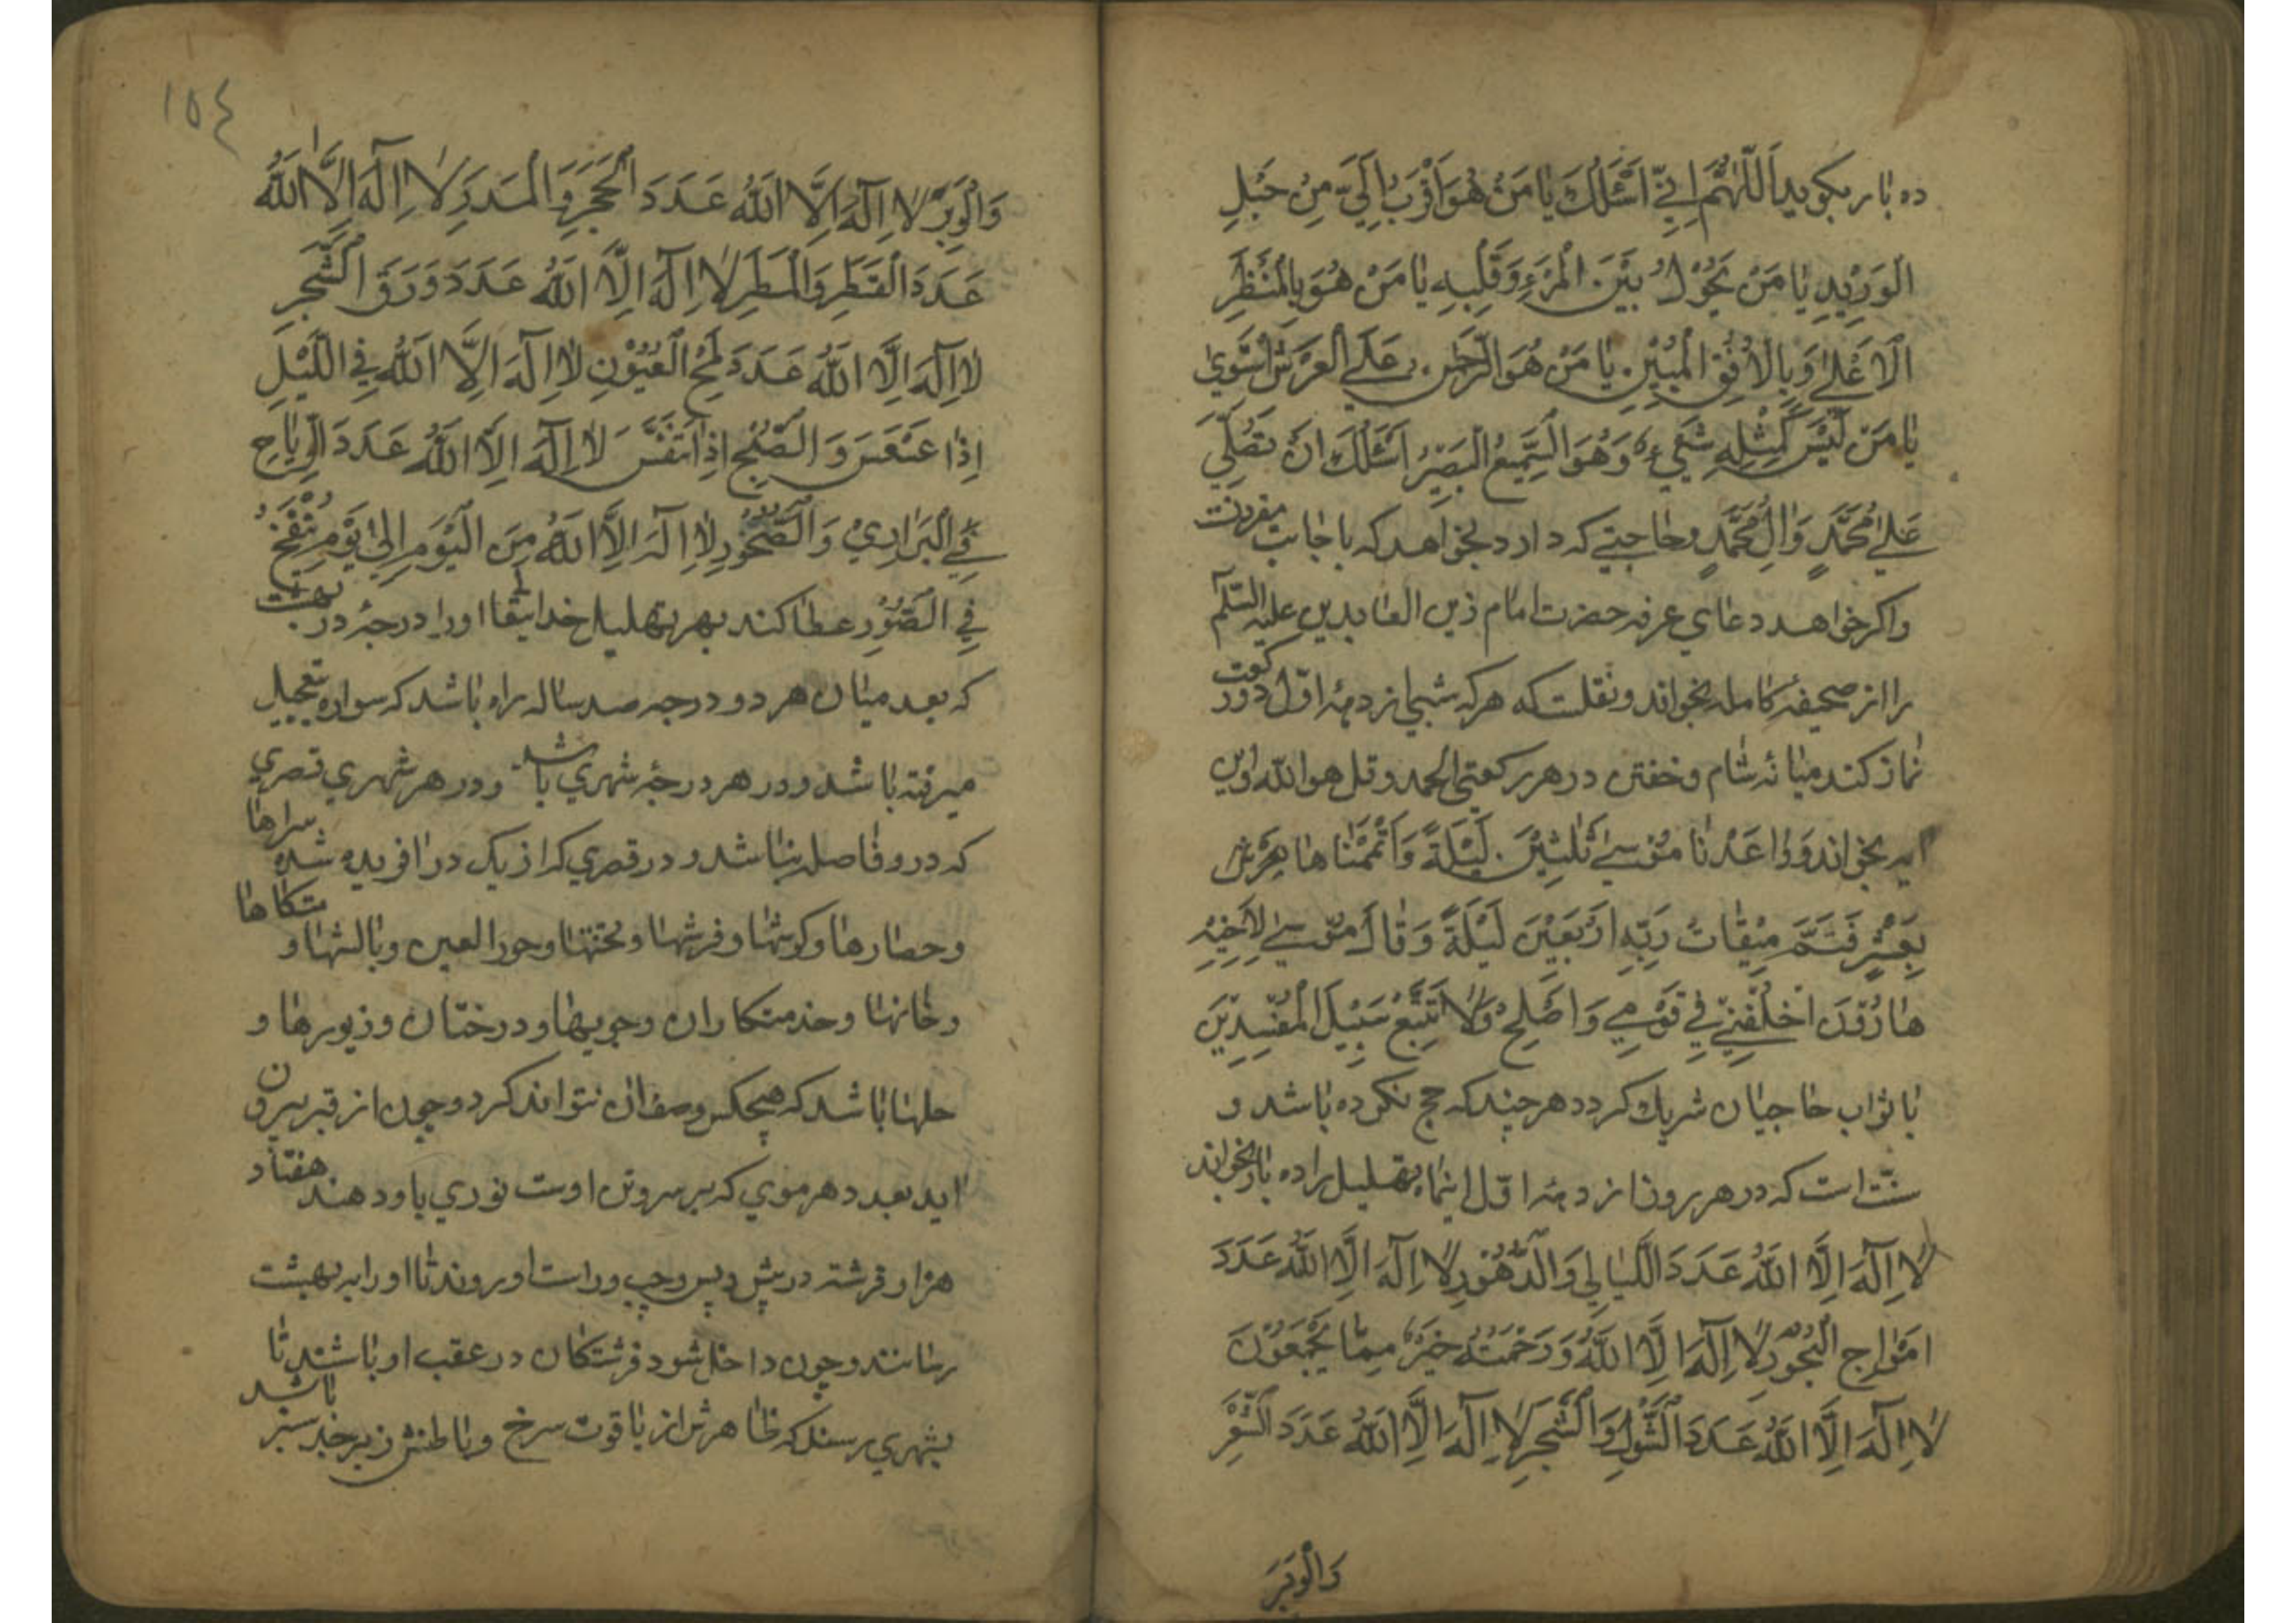 ده بار بکوید اَللّٰهُمَّ اِنّي اَسْئَلُكَ يٰا مَنْ هُوَ اَقْرَبُ اِلَيَّ مِنْ حَبْلِ
الْوَرِيْدِ يٰا مَنْ يَحُوْلُ بَيْنَ الْمَرْءِ وَقَلْبِهِ يٰا مَنْ هُوَ بِالْمَنْظَرِ
الْاَعْلىٰ وَبِالْاُفُقِ الْمُبِيْنِ يٰا مَنْ هُوَ الرَّحْمٰنُ عَلَي الْعَرْشِ اسْتَوىٰ
يٰا مَنْ لَيْسَ كَمِثْلِهِ شَيْءٌ وَهُوَ السَّمِيْعُ الْبَصِيْرُ اَسْئَلُكَ اَنْ تُصَلِّيَ
عَلىٰ مُحَمَّدٍ وَاٰلِ مُحَمَّدٍ وحاجتي که دارد بخواهد که باجابت مقرونت
واکر خواهد دعاي عرفه حضرت امام زين العابدين عليه السّلم
را از صحيفهٔ کامله بخواند ونقلست که هرکه شبها از دههٔ اوّل دو رکعت
نماز کند ميانه شام وخفتن در هر رکعتي الحمد وقل هو اللّه واين
ايه بخواند وَوٰاعَدْنٰا مُوْسىٰ ثَلٰثِيْنَ لَيْلَةً وَاَتْمَمْنٰاهٰا بِعَشْرٍ
بِعَشْرٍ فَتَمَّ مِيْقٰاتُ رَبِّهِ اَرْبَعِيْنَ لَيْلَةً وَقٰالَ مُوْسىٰ لِاَخِيْهِ
هٰارُوْنَ اخْلُفْنِيْ فِي قَوْمِي وَاَصْلِحْ وَلٰا تَتَّبِعْ سَبِيْلَ الْمُفْسِدِيْنَ
با ثواب حاجيان شريك کردد هرچند که حج نکرده باشد و
سنّت است که در هر روز از دههٔ اوّل اينماه تهليل را ده بار بخواند
لٰا اِلٰهَ اِلَّا اللّٰهُ عَدَدَ اللَّيٰالِي وَالدُّهُوْرِ لٰا اِلٰهَ اِلَّا اللّٰهُ عَدَدَ
اَمْوٰاجِ الْبُحُوْرِ لٰا اِلٰهَ اِلَّا اللّٰهُ وَرَحْمَتُهُ خَيْرٌ مِمّٰا يَجْمَعُوْنَ
لٰا اِلٰهَ اِلَّا اللّٰهُ عَدَدَ الشَّوْكِ وَالشَّجَرِ لٰا اِلٰهَ اِلَّا اللّٰهُ عَدَدَ الشَّعْرِ
وَالْوَبَرِ
١٥٤
وَالْوَبَرِ لٰا اِلٰهَ اِلَّا اللّٰهُ عَدَدَ الْحَجَرِ وَالْمَدَرِ لٰا اِلٰهَ اِلَّا اللّٰهُ
عَدَدَ الْقَطْرِ وَالْمَطَرِ لٰا اِلٰهَ اِلَّا اللّٰهُ عَدَدَ وَرَقِ الشَّجَرِ
لٰا اِلٰهَ اِلَّا اللّٰهُ عَدَدَ لَمْحِ الْعُيُوْنِ لٰا اِلٰهَ اِلَّا اللّٰهُ فِي اللَّيْلِ
اِذٰا عَسْعَسَ وَالصُّبْحِ اِذٰا تَنَفَّسَ لٰا اِلٰهَ اِلَّا اللّٰهُ عَدَدَ الرِّيٰاحِ
فِي الْبَرٰارِيْ وَالصُّخُوْرِ لٰا اِلٰهَ اِلَّا اللّٰهُ مِنَ الْيَوْمِ اِلىٰ يَوْمِ يُنْفَخُ
فِي الصُّوْرِ عطا کند بهر تهليل خدايتعا او را درجهٔ در بهشت
که بعد ميان هر دو درجه صد ساله راه باشد که سواره بتعجيل
ميرفته باشد ودر هر درجهٔ شهري باشد ودر هر شهري قصري
که در و فاصله نباشد ودر قصري که از يک در افريده شده سراها
وحصارها وکوشها وفرشها وتختها وحور العين وبالشها و متکاها
وخانها وخدمتکاران وجويها ودرختان وزيورها و
حلها باشد که هيچکس وصف ان نتواند کرد وچون از قبر بيرون
ايد بعدد هر موي که بر سر وتن اوست نوري باو دهند هفتاد
هزار فرشته در پيش وپس وچپ وراست او روند تا او را به بهشت
رسانند وچون داخل شود فرشتکان در عقب او باشند تا
بشهري رسند که ظاهرش از ياقوت سرخ وباطنش زبرجد سبز باشد